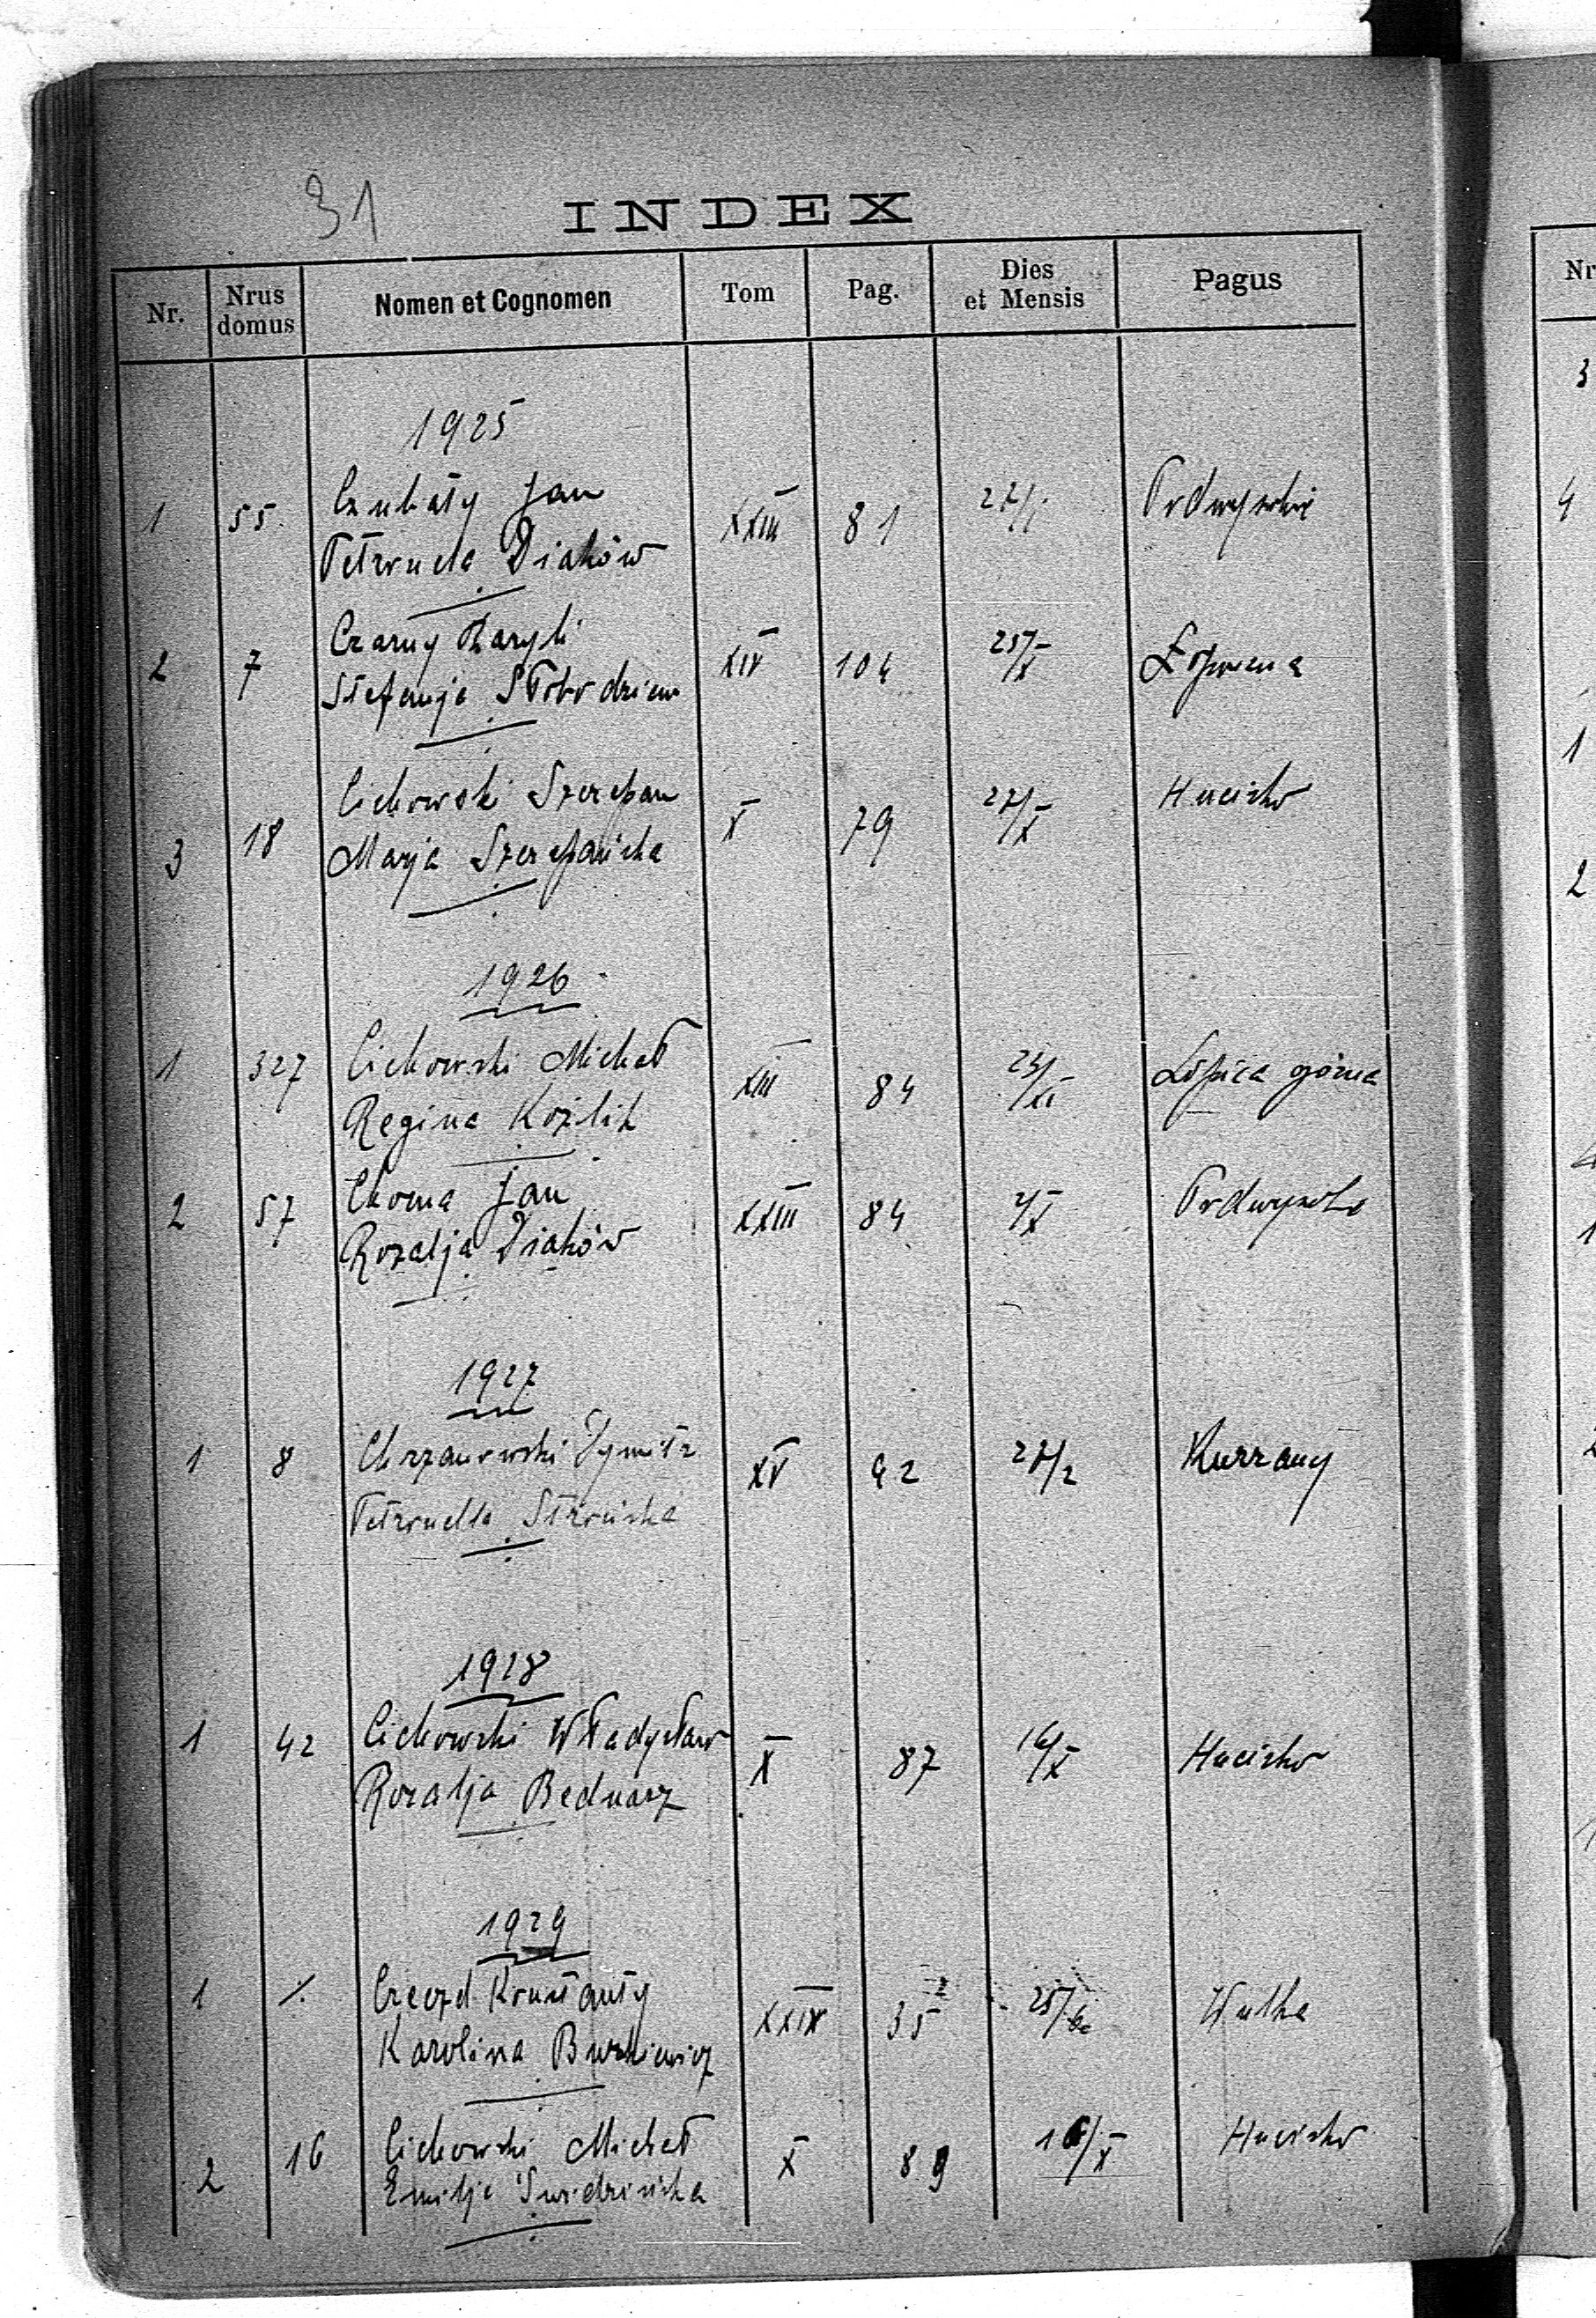 31
INDEX
Nr. Nrus domus Nomen et Cognomen Tom Pag. Dies et Mensis Pagus
1925
1 55 Czubaty Jan XXIII 81 27/I Podwysokie
Petronela Diaków
2 7 Czarny Bazyli XIV 104 25/X
Stefanja
3 18 Cichowski Szczepan X 79 27/X Hucisko
Marja Szczepańska
1926
1 327 Cichowski Michał XIII 84 23/XI Lipica górna
Regina Koźlik
2 57 Choma Jan XXIII 84 Podwysokie
Rozalja Diaków
1927
1 8 Chrzanowski Dymitr XV 42 27/2 Kurzany
Petronella Strońska
1928
1 42 Cichowski Władysław X 87 16/X Hucisko
Rozalja Bednarz
1929
1 ⁒ Konstanty XXIX 35 Wulka
Karolina
2 16 Cichowski Michał X 89 16/X Hucisko
Emilja Świdzińska
Nr
3
4
1
2
1
2
1